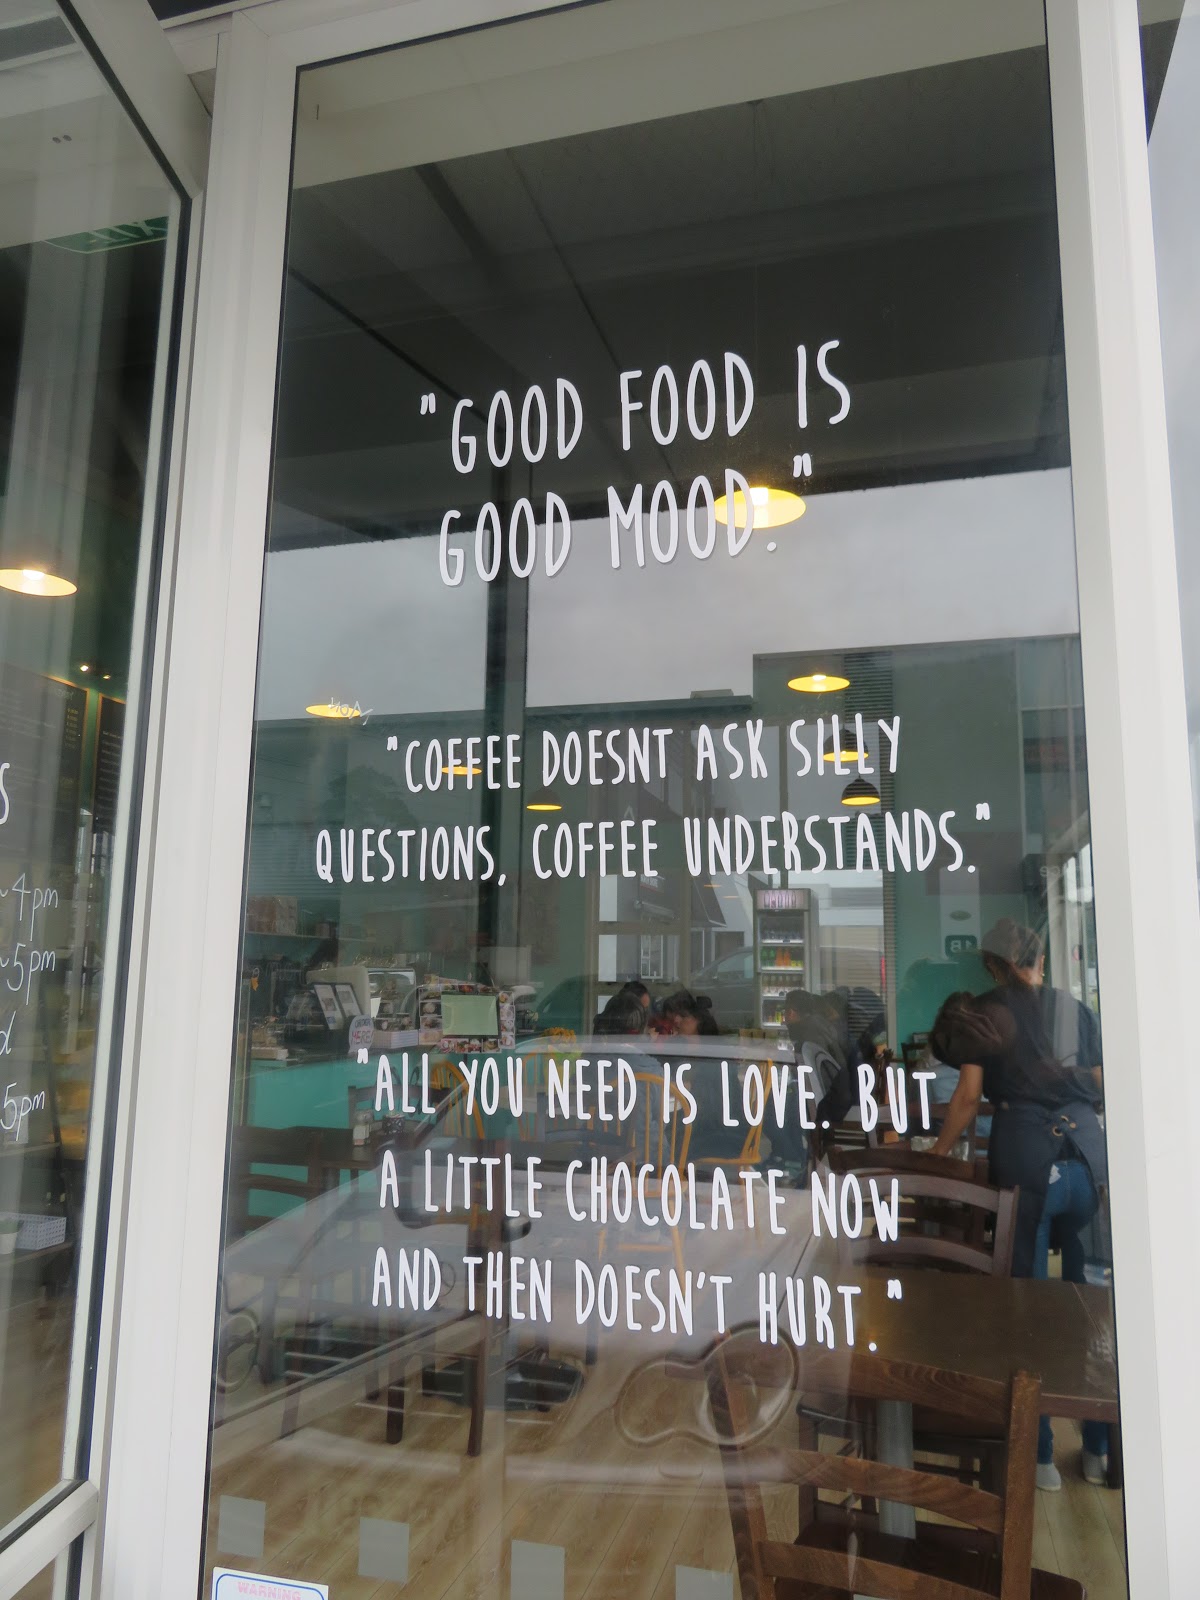 "GOOD FOOD IS
GOOD MOOD."
"COFFEE DOESNT ASK SILLY
QUESTIONS, COFFEE UNDERSTANDS."
"ALL YOU NEED IS LOVE. BUT
A LITTLE CHOCOLATE NOW
AND THEN DOESN'T HURT."
4pm
5pm
5pm
WARNING